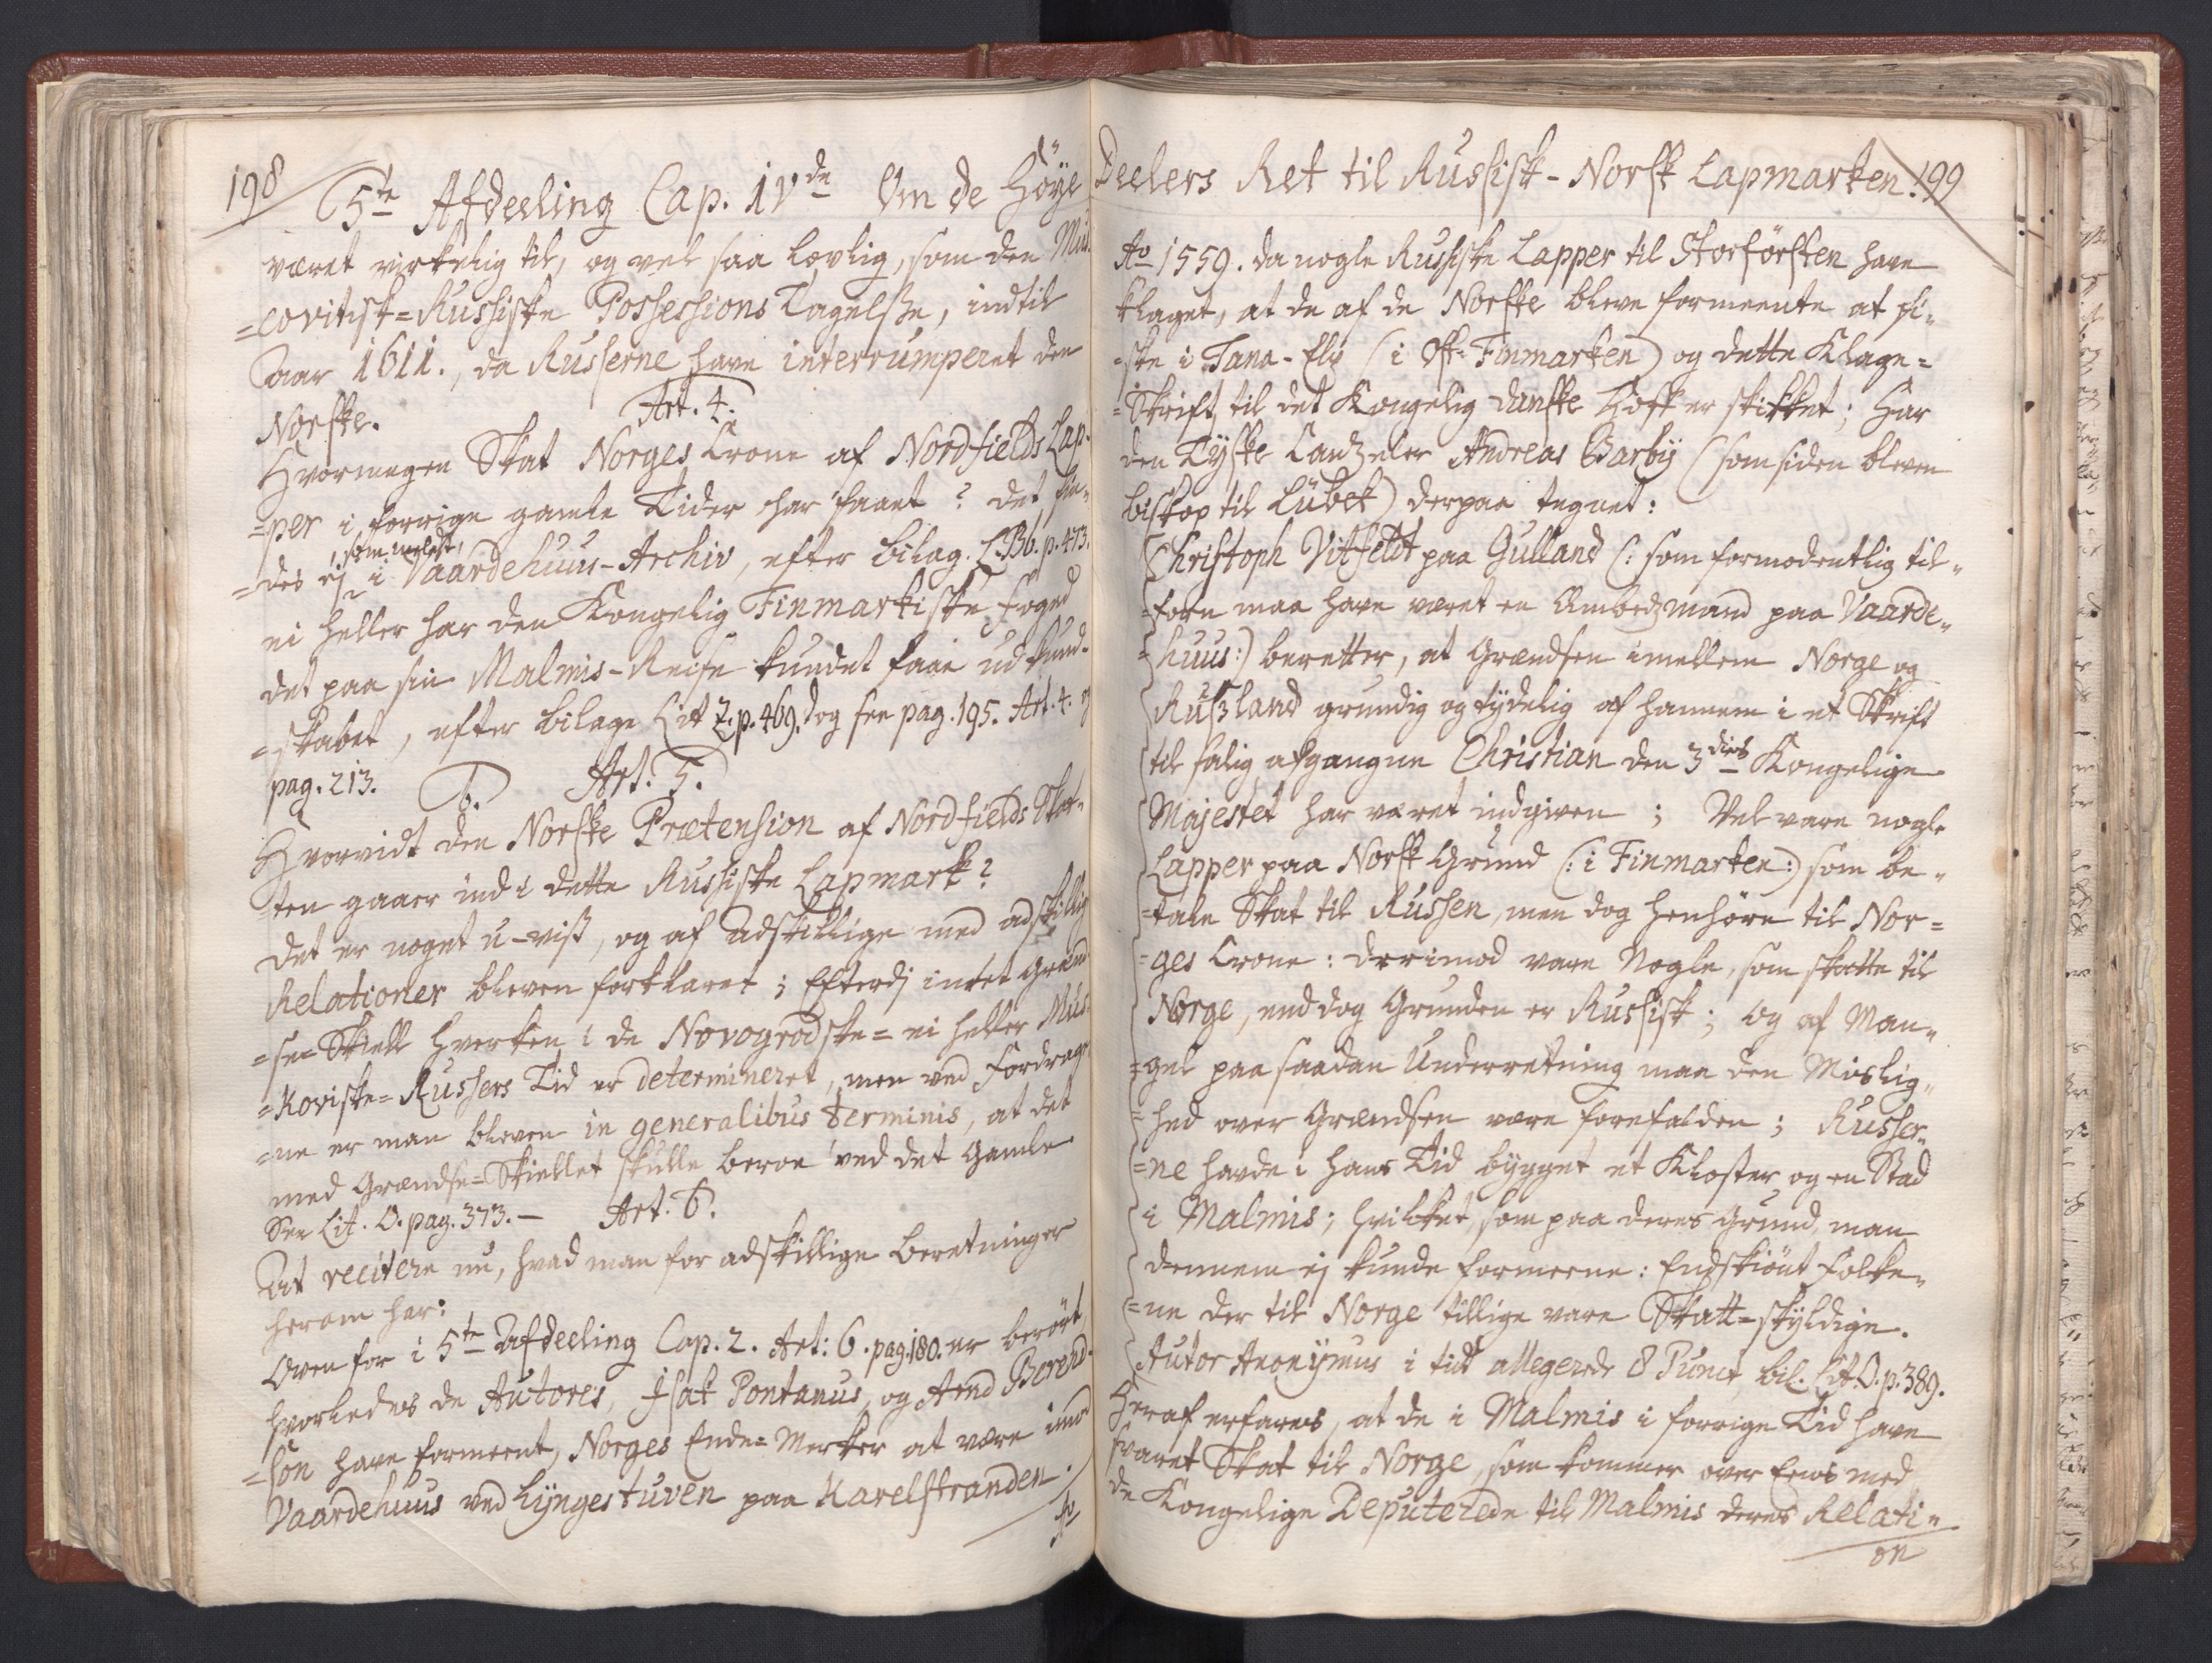 198
5te Afdeeling Cap. IVde Om de Höye
været virkelig til, og vel saa lovlig, som den Mus-
=covitisk=Russiske Possessions Tagelsße, indtil
Aar 1611., da Russerne have interrumperet den
Norske.
Art. 4.
Hvormegen Skat Norges Crone af Nordfields Lap-
=per i forrige gamle Tider har faaet? det fin-
=des ej, som meldt, i Vaardehuus-Archiv, efter bilag. L. Bb. p. 473.
ei heller har den Kongelig Finmarkiske Foged
det paa sin Malmis-Reise kundet faae udkund-
=skabet, efter bilage Lit Z. p. 469. dog see pag. 195. Art. 4. og
pag. 213.
Art. 5.
Hvorvidt den Norske Prætension af Nordfields Skat-
ten gaaer ind i dette Russiske Lapmark?
det er noget u-viß, og af adskillige med adskillig
Relationer bleven forklaret; Efterdj intet Grænd-
=se=Skiell hverken i de Novogrodske= ei heller Mus-
=koviske= Russers Tid er determineret, men ved Fordrage-
=ne er man bleven in generalibus terminis, at det
med Grændse=Skiellet skulle beroe ved det Gamle
See Lit. O. pag. 373. —
Art. 6.
At recitere nu, hvad man for adskillige beretninger
herom har:
Oven for i 5te Afdeeling Cap. 2. Art: 6. pag. 180. er berört
hvorledes de Autores, Isak Pontanus, og Arnd Berend-
=sön have formeent, Norges Ende= Merker at være imod
Vaardehuus ved Lÿngestuven paa Karelstranden.
Ao
Deelers Ret til Russisk-Norsk Lapmarken. 199
Ao 1559. da nogle Russiske Lapper til Storförsten have
klaget, at de af de Norske bleve formeente at fi-
=ske i Tana-Elv (i Ost-Finmarken) og dette Klage=
=Skrift til det Kongelig danske Hoff er skikket; Har
den Tÿske Cantzeler Andreas Barbÿ (som siden bleven
biskop til Lübek) derpaa tegnet:
Christoph Vitfeldt paa Gulland (: som formodentlig til-
=forn maa have været en Ambedzmand paa Vaarde-
=huus:) beretter, at Grændsen imellem Norge og
Rußland grundig og tÿdelig af hannem i et Skrift
til salig afgangne Christian den 3dies Kongelige
Majestet har været indgiven; Vel vare nogle
Lapper paa Norsk Grund (: i Finmarken:) som be-
=tale Skat til Russen, men dog henhöre til Nor=
=ges Crone: derimod vare Nogle, som skatte til
Norge, end dog Grunden er Russisk; og af Man-
=gel paa saadan Underretning maa den Mislig-
=hed over Grændsen være forefalden; Russer-
=ne havde i hans Tid bÿgget et Kloster og en Stad
i Malmis; hvilket, som paa deres Grund, man
dennem ej kunde formeene: Endskiönt Folke-
=ne der til Norge tillige vare Skatt=skÿldige.
Autor Anonÿmus i tidt allegerede 8 Punct bil. Lit. O. p. 389.
Heraf erfares, at de i Malmis i forrige Tid have
svaret Skat til Norge, som kommer over Eens med
de Kongelige Deputerede til Malmis deres Relati-
on